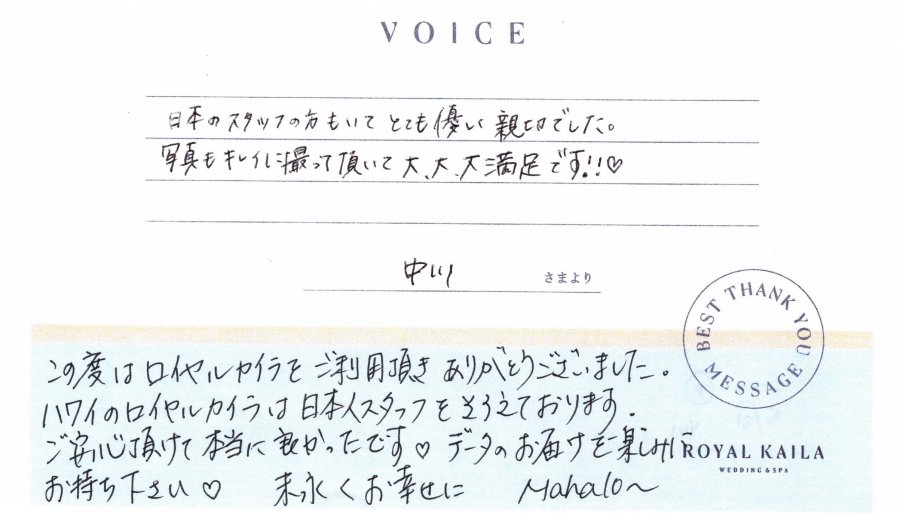 VOICE
日本のスタッフの方もいて とても優しく 親切でした。
写真もキレイに撮って頂いて 大、大、大満足です!!♡
中川 さまより
BEST THANK YOU MESSAGE
この度はロイヤルカイラをご利用頂き ありがとうございました。
ハワイのロイヤルカイラは日本人スタッフをそろえております。
ご安心頂けて本当に良かったです♡ データのお届けを楽しみに
ROYAL KAILA
WEDDING & SPA
お待ち下さい♡ 末永くお幸せに Mahalo〜